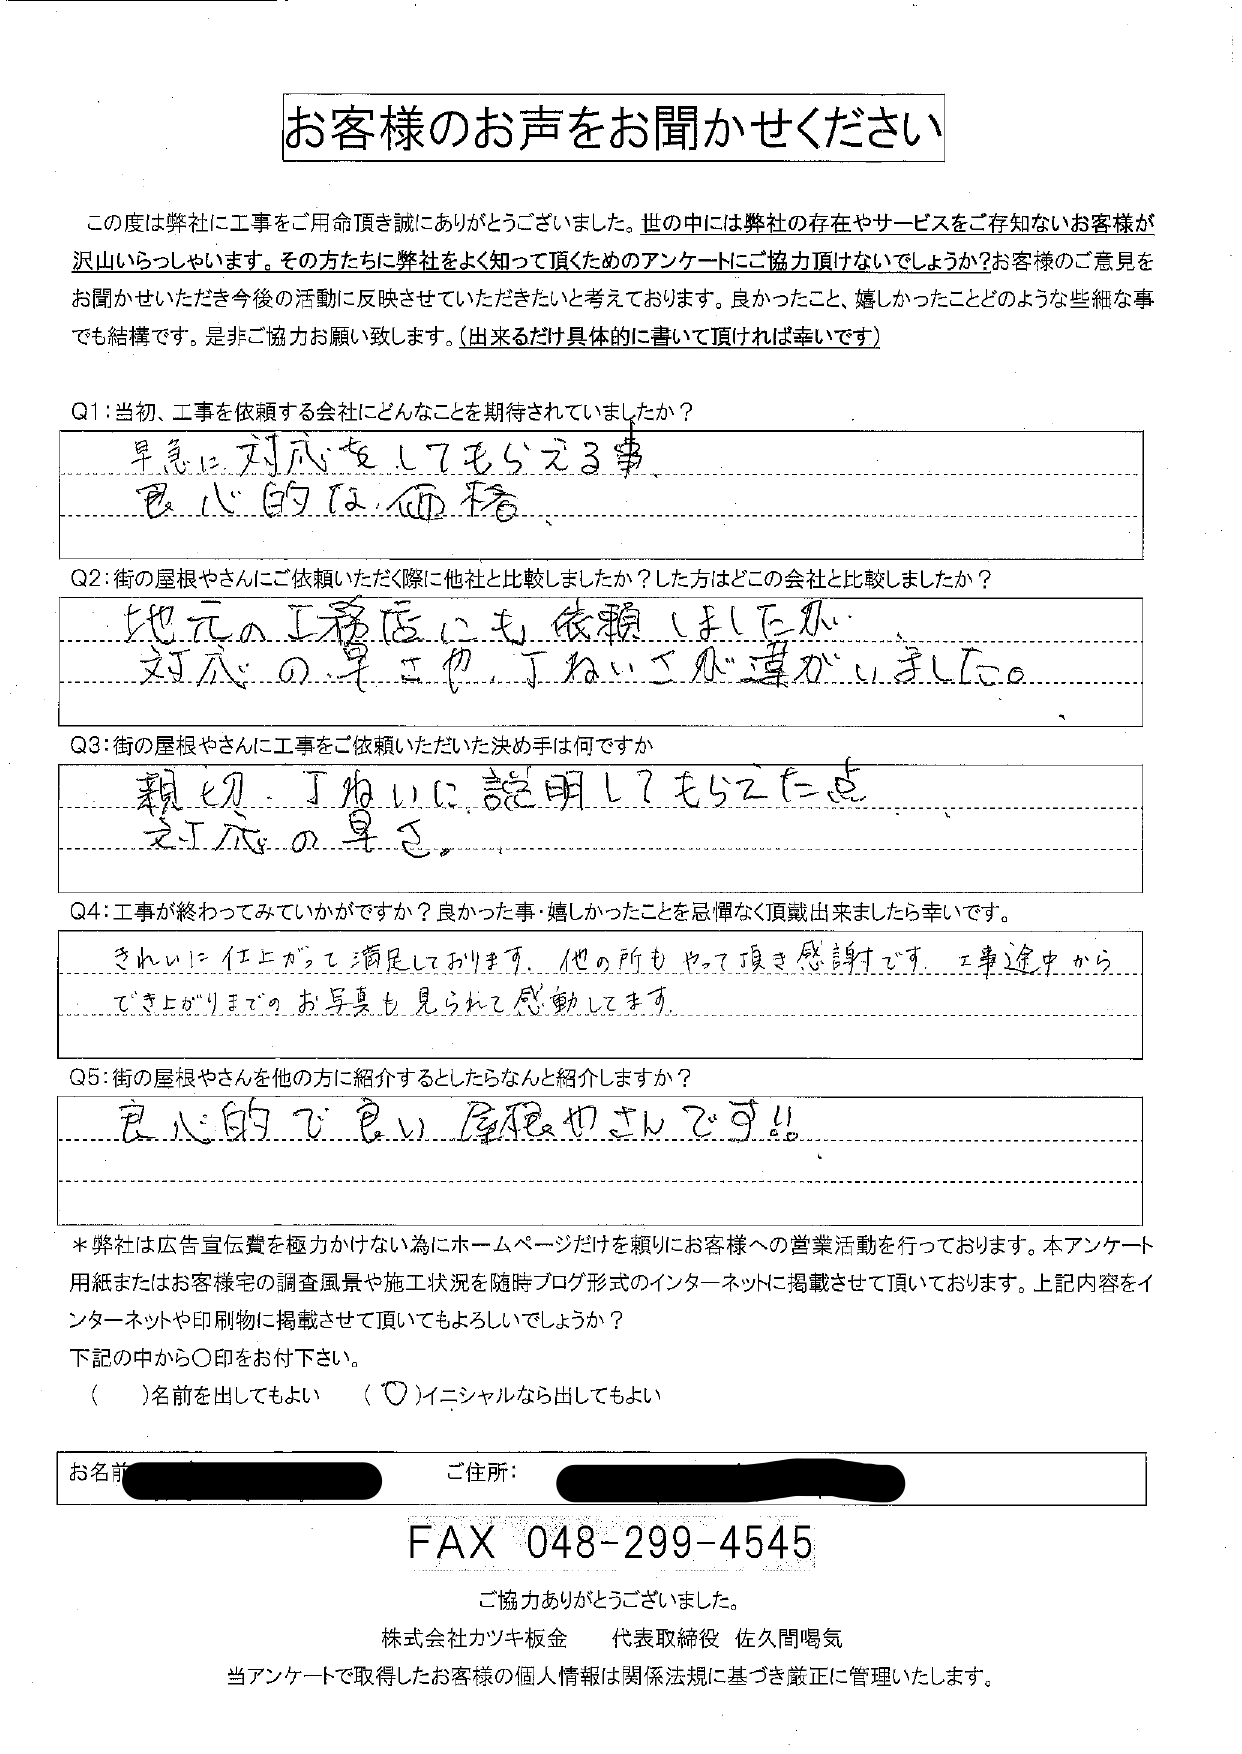 お客様のお声をお聞かせください
この度は弊社に工事をご用命頂き誠にありがとうございました。世の中には弊社の存在やサービスをご存知ないお客様が
沢山いらっしゃいます。その方たちに弊社をよく知って頂くためのアンケートにご協力頂けないでしょうか?お客様のご意見を
お聞かせいただき今後の活動に反映させていただきたいと考えております。良かったこと、嬉しかったことどのような些細な事
でも結構です。是非ご協力お願い致します。(出来るだけ具体的に書いて頂ければ幸いです)
Q1:当初、工事を依頼する会社にどんなことを期待されていましたか?
早急に対応をしてもらえる事
良心的な価格
Q2:街の屋根やさんにご依頼いただく際に他社と比較しましたか?した方はどこの会社と比較しましたか?
地元の工務店にも依頼しましたが
対応の早さや、丁ねいさが違がいました。
Q3:街の屋根やさんに工事をご依頼いただいた決め手は何ですか
親切、丁ねいに説明してもらえた点
対応の早さ。
Q4:工事が終わってみていかがですか?良かった事・嬉しかったことを忌憚なく頂戴出来ましたら幸いです。
きれいに仕上がって満足しております。他の所もやって頂き感謝です。工事途中から
でき上がりまでのお写真も見られて感動してます。
Q5:街の屋根やさんを他の方に紹介するとしたらなんと紹介しますか?
良心的で良い屋根やさんです!!
*弊社は広告宣伝費を極力かけない為にホームページだけを頼りにお客様への営業活動を行っております。本アンケート
用紙またはお客様宅の調査風景や施工状況を随時ブログ形式のインターネットに掲載させて頂いております。上記内容をイ
ンターネットや印刷物に掲載させて頂いてもよろしいでしょうか?
下記の中から〇印をお付下さい。
( )名前を出してもよい (〇)イニシャルなら出してもよい
お名前 ご住所:
FAX 048-299-4545
ご協力ありがとうございました。
株式会社カツキ板金 代表取締役 佐久間喝気
当アンケートで取得したお客様の個人情報は関係法規に基づき厳正に管理いたします。